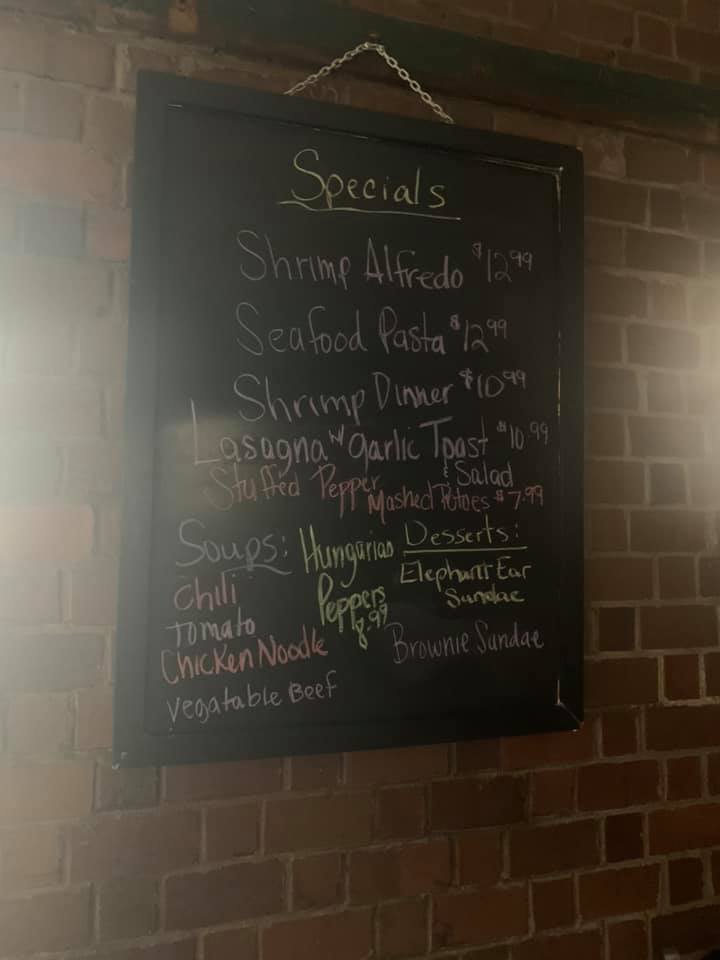 Specials
Shrimp Alfredo $12.99
Seafood Pasta $12.99
Shrimp Dinner $10.99
Lasagna w/ garlic Toast $10.99
& Salad
Stuffed Pepper
Mashed Pototoes $7.99
Soups:
Chili
Tomato
Chicken Noodle
Vegatable Beef
Hungarian
Peppers
8.99
Desserts:
Elephant Ear
Sundae
Brownie Sundae